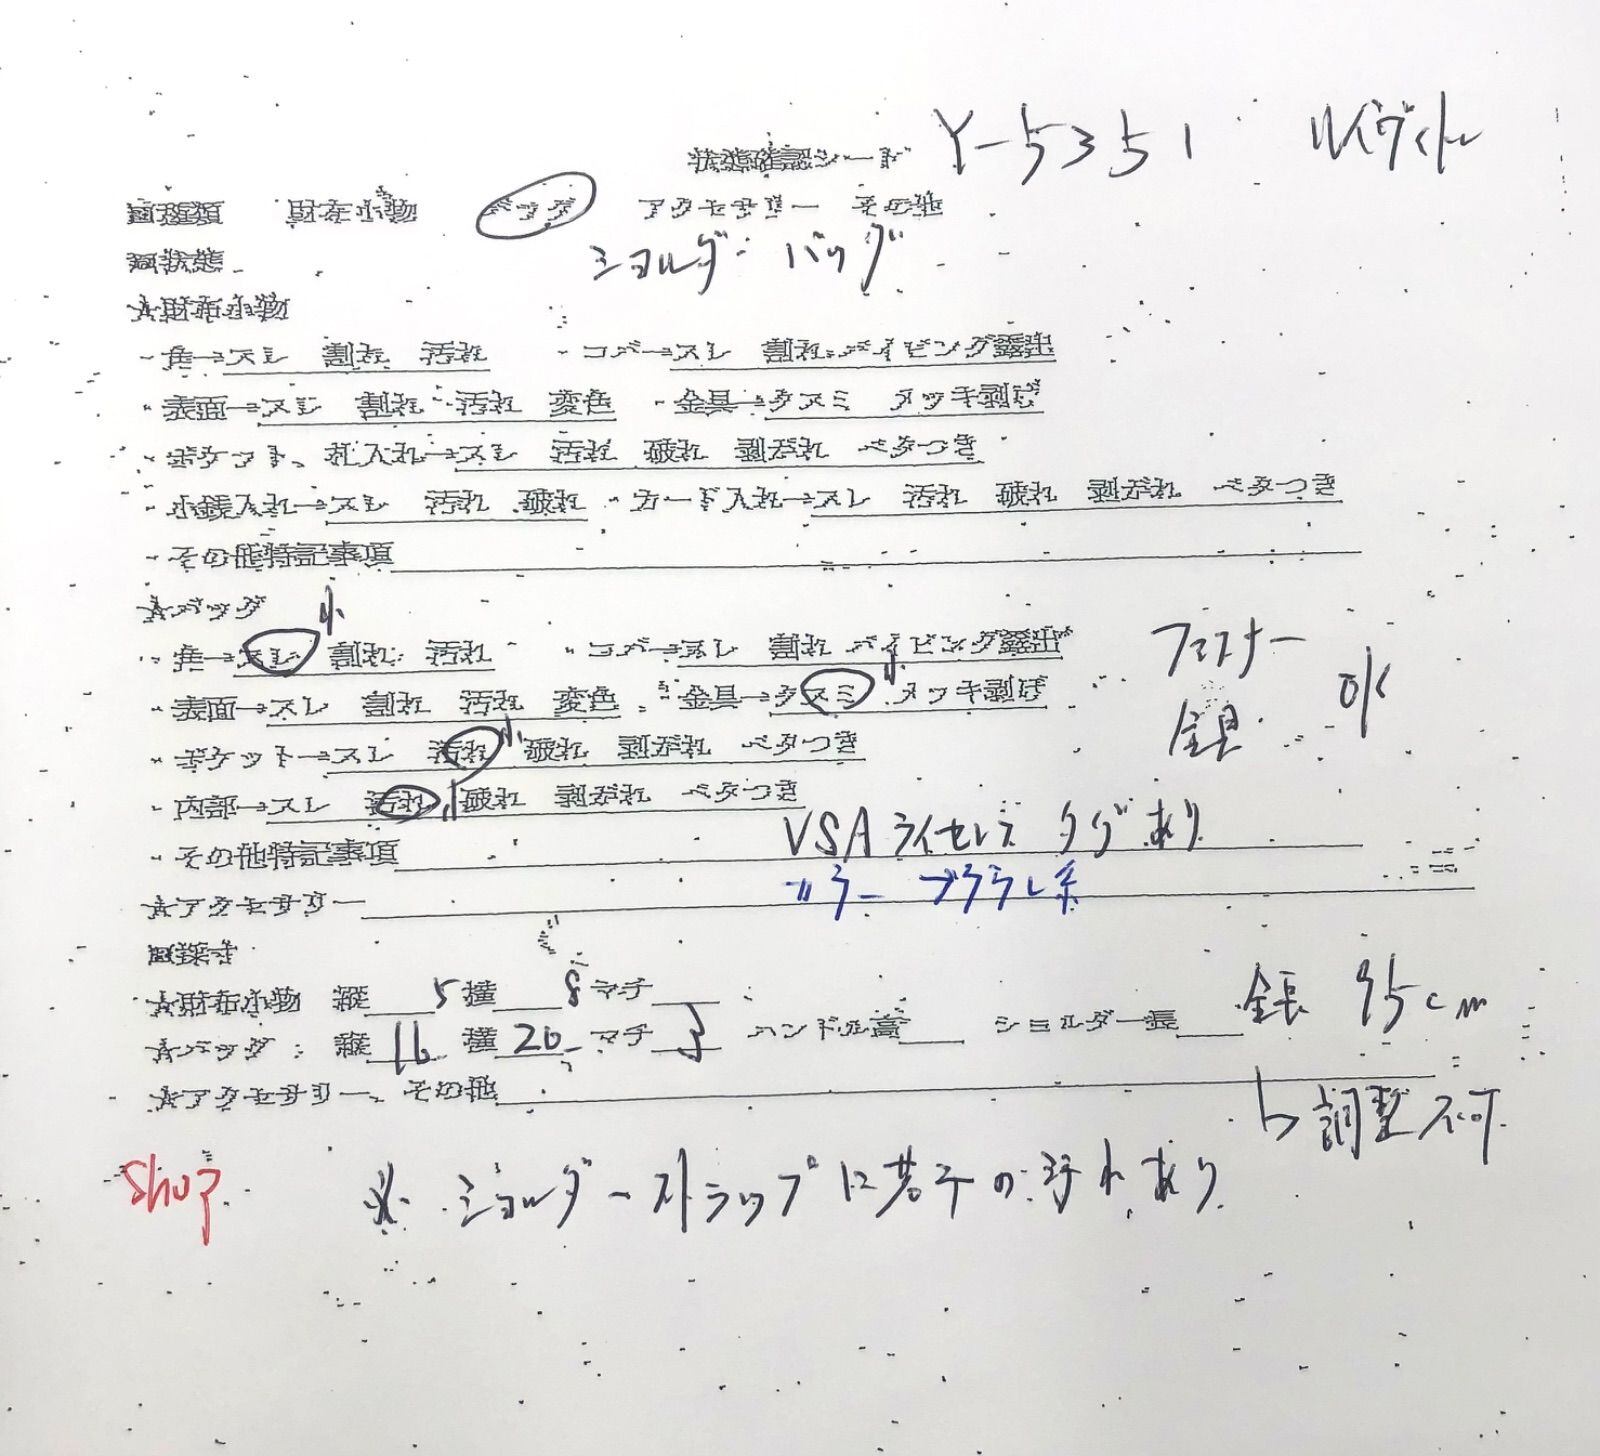 状態確認シート Y-5351 ルイヴィトン
□種類 財布小物 バッグ アクセサリー その他
□状態 ショルダーバッグ
☆財布小物
・角→スレ 割れ 汚れ ・コバ→スレ 割れ パイピング露出
・表面→スレ 割れ 汚れ 変色 ・金具→クスミ メッキ剥げ
・ポケット、札入れ→スレ 汚れ 破れ 剥がれ ベタつき
・小銭入れ→スレ 汚れ 破れ ・カード入れ→スレ 汚れ 破れ 剥がれ ベタつき
・その他特記事項
☆バッグ 小
・角→スレ 割れ 汚れ ・コバ→スレ 割れ パイピング露出 ファスナー
・表面→スレ 割れ 汚れ 変色 ・金具→クスミ 小 メッキ剥げ 金具 OK
・ポケット→スレ 汚れ 小 破れ 剥がれ ベタつき
・内部→スレ 汚れ 小 破れ 剥がれ ベタつき
・その他特記事項 VSA ライセンス タグあり
☆アクセサリー カラー ブラウン系
□採寸
☆財布小物 縦 5 横 8 マチ
☆バッグ: 縦 16 横 20 マチ 3 ハンドル高 ショルダー長 全長 95cm
☆アクセサリー、その他 ↳調整不可
Shop ※ ショルダーストラップに若干の汚れあり